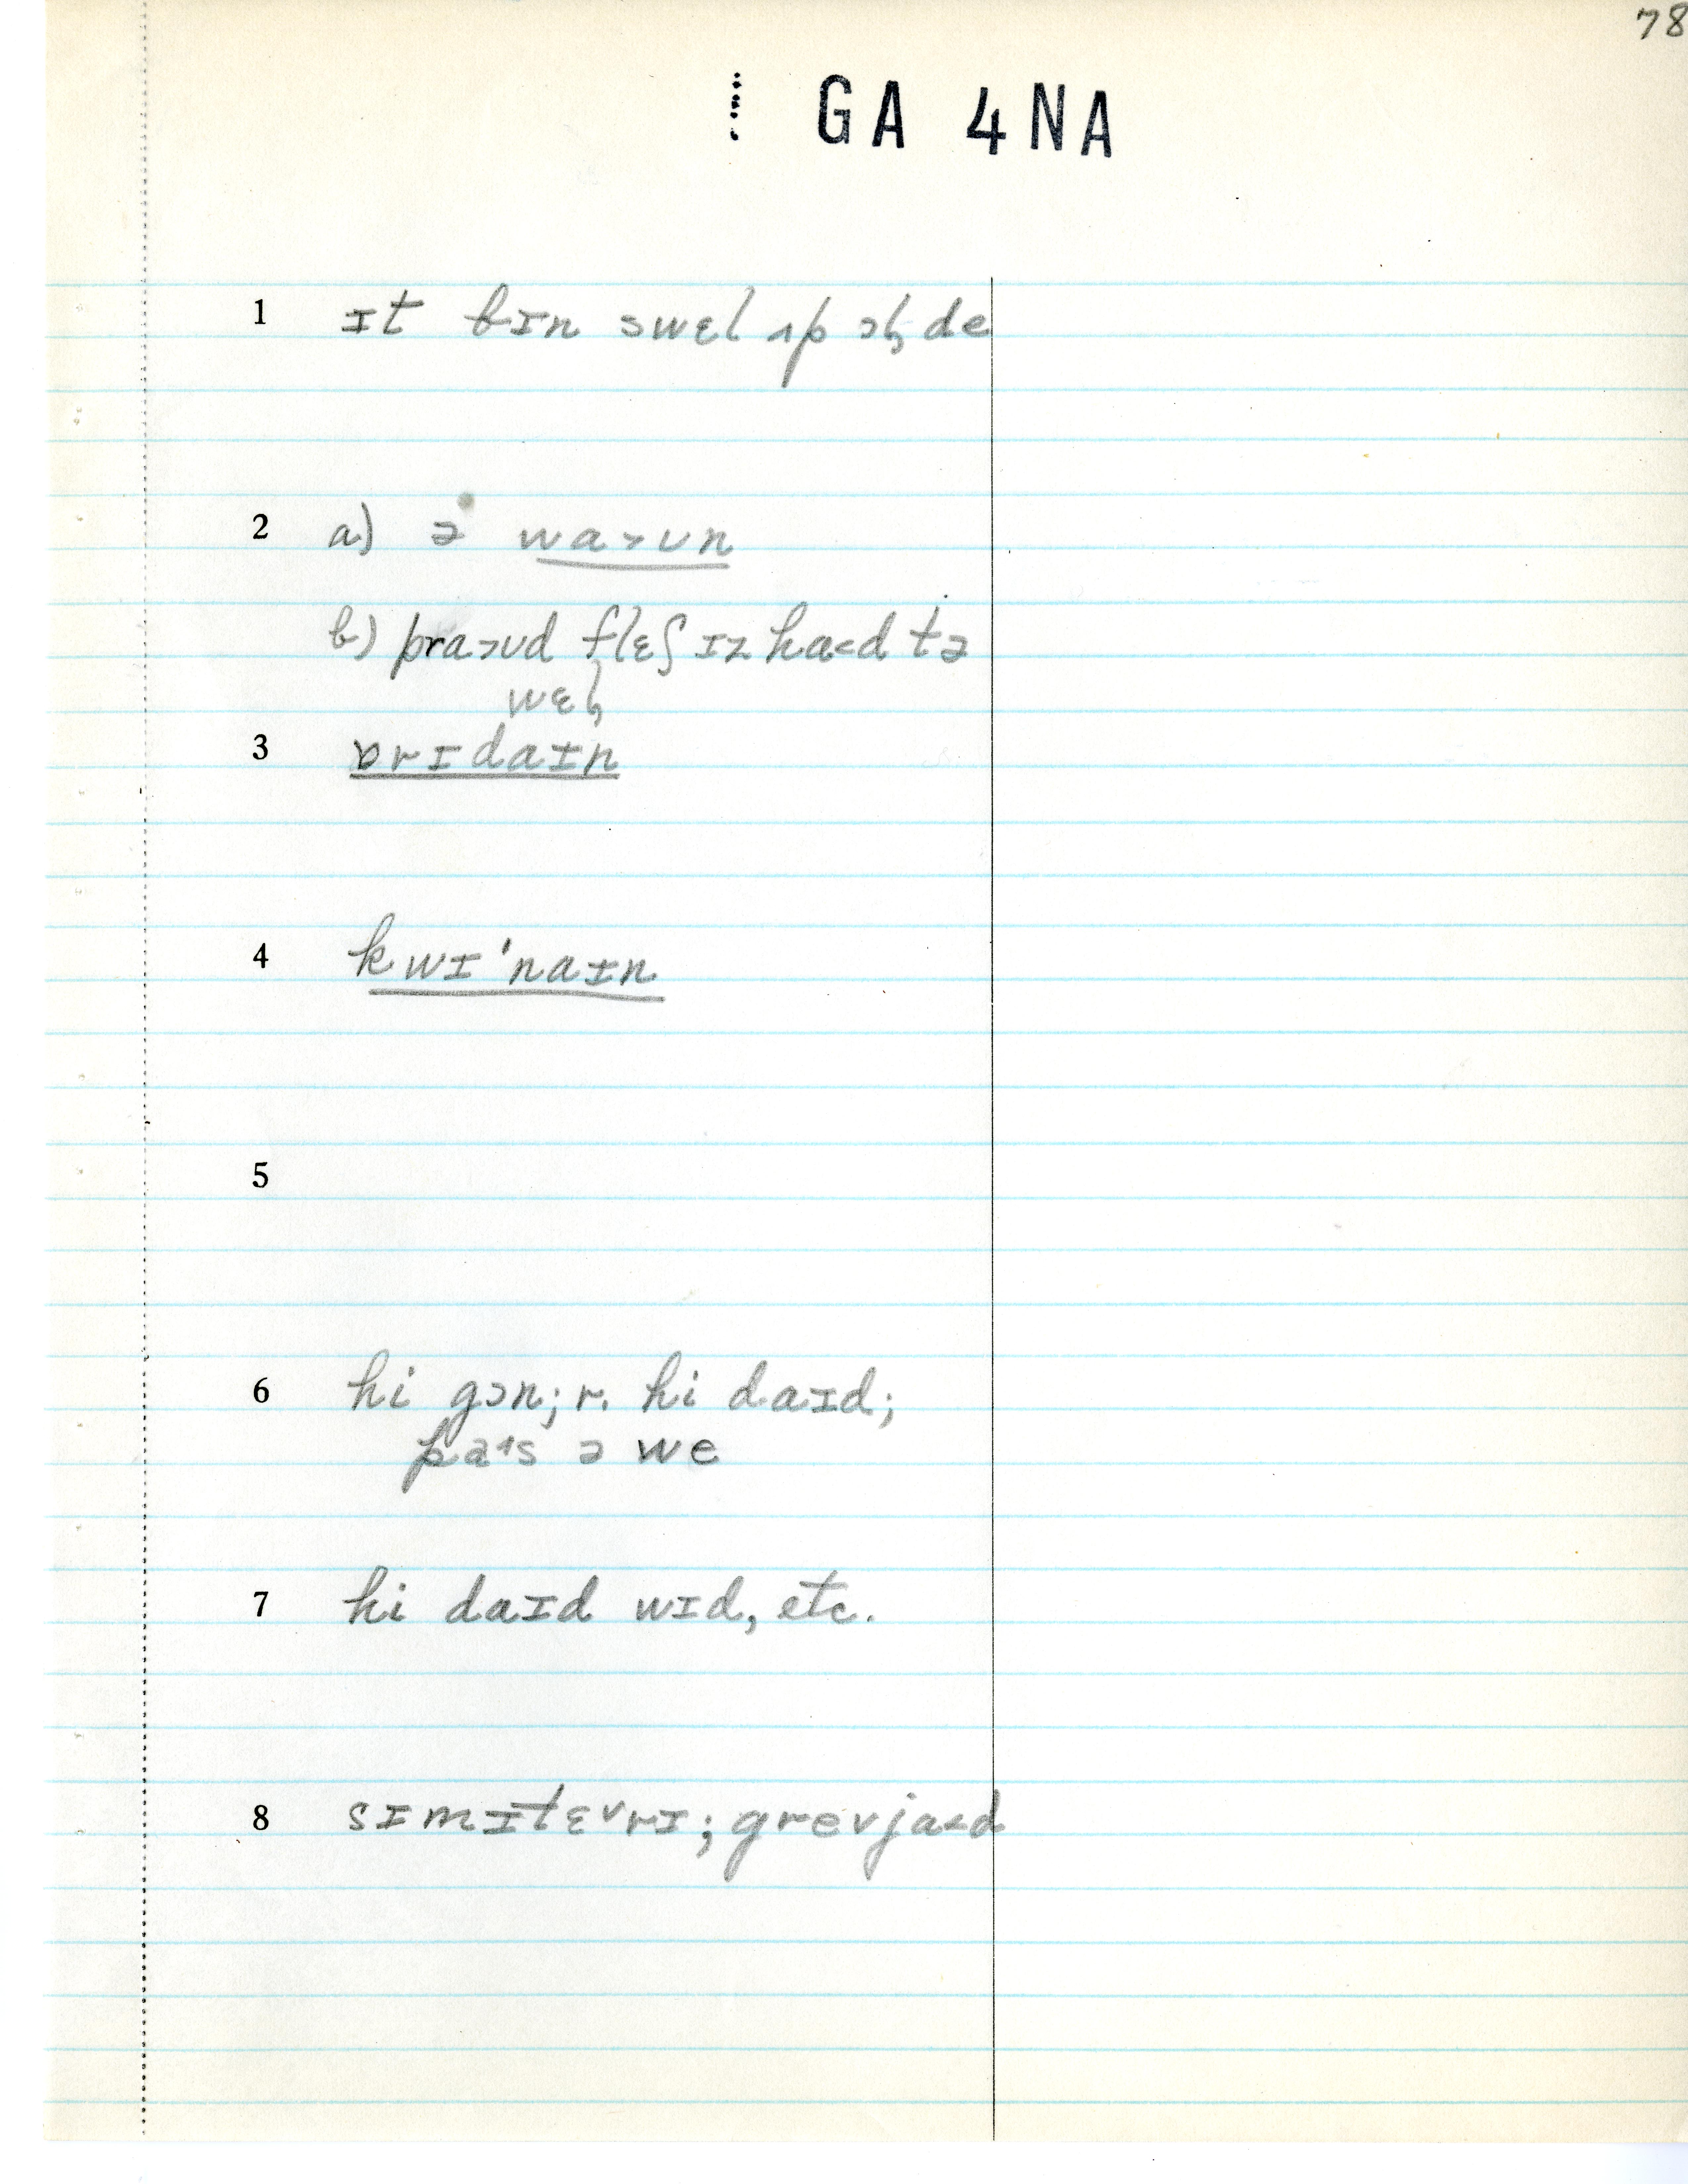 78
GA 4NA
1 ɪt bɪn swɛl ʌp ɔɫ de
2 a) ə wa˃ʊn
b) pra˃ʊd flɛʃ ɪz ha˂d tə
wɛɫ
3 ɒrɪdaɪn
4 kwɪ'naɪn
5
6 hi gɔn; r. hi daɪd;
ə we
7 hi daɪd wɪd, etc.
8 sɪmɪtɛ˅rɪ; grevja˂d